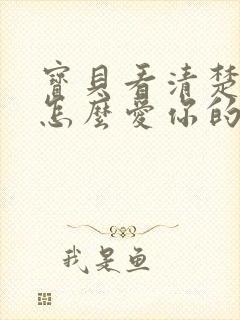 寶貝看清楚
怎麼愛你的
我是鱼